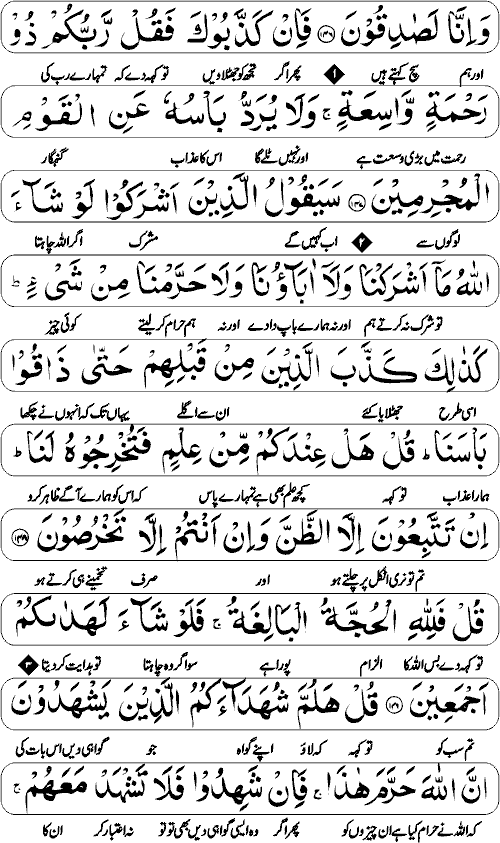 وَاِنَّا لَصٰدِقُوْنَ ﴿۱۴۶﴾ فَاِنْ كَذَّبُوْكَ فَقُلْ رَّبُّكُمْ ذُوْ
اور ہم سچ کہتے ہیں ۱ پھر اگر تجھ کو جھٹلاویں تو کہہ دے کہ تمہارے رب کی
رَحْمَةٍ وَّاسِعَةٍ ۚ وَلَا يُرَدُّ بَاْسُهٗ عَنِ الْقَوْمِ
رحمت میں بڑی وسعت ہے اور نہیں ٹلے گا اس کا عذاب گنہگار
الْمُجْرِمِيْنَ ﴿۱۴۷﴾ سَيَقُوْلُ الَّذِيْنَ اَشْرَكُوْا لَوْ شَآءَ
لوگوں سے ۲ اب کہیں گے مشرک اگر اللہ چاہتا
اللّٰهُ مَاۤ اَشْرَكْنَا وَلَاۤ اٰبَآؤُنَا وَلَا حَرَّمْنَا مِنْ شَیْءٍ ؕ
تو شرک نہ کرتے ہم اور نہ ہمارے باپ دادے اور نہ ہم حرام کر لیتے کوئی چیز
كَذٰلِكَ كَذَّبَ الَّذِيْنَ مِنْ قَبْلِهِمْ حَتّٰى ذَاقُوْا
اسی طرح جھٹلایا کئے ان سے اگلے یہاں تک کہ انہوں نے چکھا
بَاْسَنَا ؕ قُلْ هَلْ عِنْدَكُمْ مِّنْ عِلْمٍ فَتُخْرِجُوْهُ لَنَا ؕ
ہمارا عذاب تو کہہ کچھ علم بھی ہے تمہارے پاس کہ اس کو ہمارے آگے ظاہر کرو
اِنْ تَتَّبِعُوْنَ اِلَّا الظَّنَّ وَاِنْ اَنْتُمْ اِلَّا تَخْرُصُوْنَ ﴿۱۴۸﴾
تم تو نری اٹکل پر چلتے ہو اور صرف تخمینے ہی کرتے ہو
قُلْ فَلِلّٰهِ الْحُجَّةُ الْبَالِغَةُ ۚ فَلَوْ شَآءَ لَهَدٰىكُمْ
تو کہہ دے بس اللہ کا الزام پورا ہے سو اگر وہ چاہتا تو ہدایت کر دیتا ۳
اَجْمَعِيْنَ ﴿۱۴۹﴾ قُلْ هَلُمَّ شُهَدَآءَكُمُ الَّذِيْنَ يَشْهَدُوْنَ
تم سب کو تو کہہ کہ لاؤ اپنے گواہ جو گواہی دیں اس بات کی
اَنَّ اللّٰهَ حَرَّمَ هٰذَا ۚ فَاِنْ شَهِدُوْا فَلَا تَشْهَدْ مَعَهُمْ ۚ
کہ اللہ نے حرام کیا ہے ان چیزوں کو پھر اگر وہ ایسی گواہی دیں بھی تو تو نہ اعتبار کر ان کا